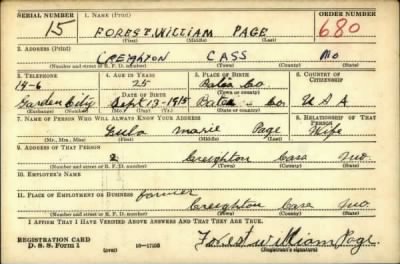 SERIAL NUMBER 1. NAME (Print) ORDER NUMBER
15 FOREST WILLIAM PAGE 680
(First) (Middle) (Last)
2. ADDRESS (Print)
CREIGHTON CASS MO
(Number and street or R. F. D. number) (Town) (County) (State)
3. TELEPHONE 4. AGE IN YEARS 5. PLACE OF BIRTH 6. COUNTRY OF CITIZENSHIP
19-6 25 Bates Co.
DATE OF BIRTH (Town or county)
Garden City Sept 13-1915 Bates Co. U S A
(Exchange) (No.) (Mo.) (Day) (Yr.) (State or country)
7. NAME OF PERSON WHO WILL ALWAYS KNOW YOUR ADDRESS 8. RELATIONSHIP OF THAT PERSON
Eula Marie Page Wife
(Mr., Mrs., Miss) (First) (Middle) (Last)
9. ADDRESS OF THAT PERSON
2 Creighton Cass Mo.
(Number and street or R. F. D. number) (Town) (County) (State)
10. EMPLOYER'S NAME
11. PLACE OF EMPLOYMENT OR BUSINESS farmer
Creighton Cass Mo.
(Number and street or R. F. D. number) (Town) (County) (State)
I AFFIRM THAT I HAVE VERIFIED ABOVE ANSWERS AND THAT THEY ARE TRUE.
REGISTRATION CARD Forest William Page.
D. S. S. FORM 1 (over) 16-17105 (Registrant's signature)